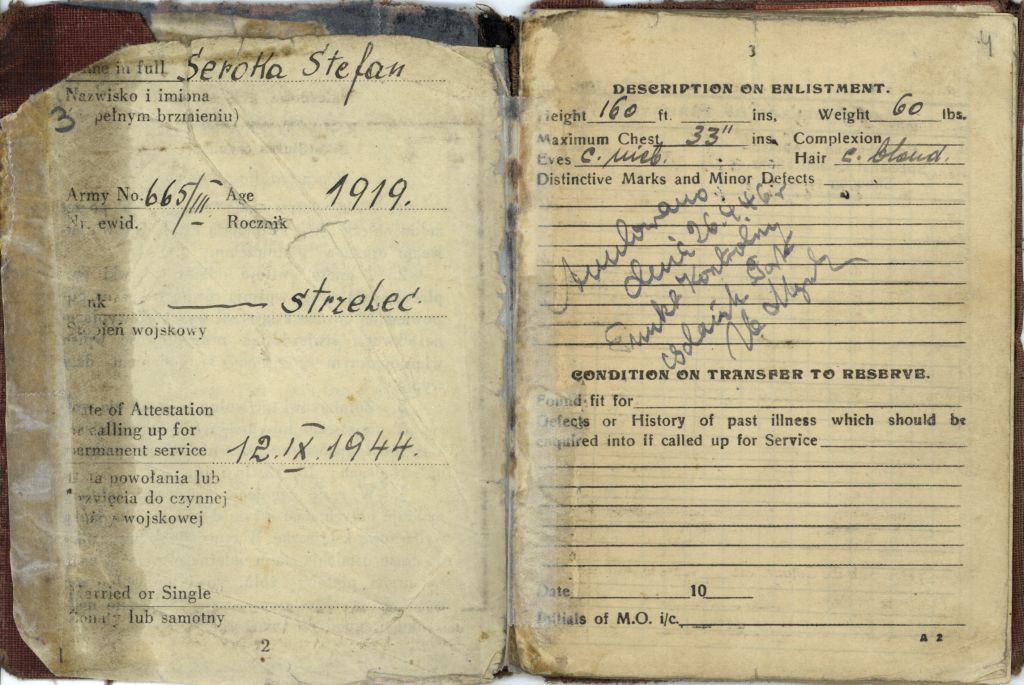 3
in full Serotta Stefan
Nazwisko i imiona
pełnym brzmieniu)
Army No. 665/III Age 1919.
ewid. Rocznik
strzelec
wojskowy
of Attestation
calling up for
permanent service 12.IX.1944.
powołania lub
do czynnej
wojskowej
Married or Single
lub samotny
2
4
3
DESCRIPTION ON ENLISTMENT.
Height 160 ft. ins. Weight 60 lbs.
Maximum Chest 33" ins. Complexion
Eyes c. nieb. Hair c. blond.
Distinctive Marks and Minor Defects
Anulowano
dnia 26.9.46 r
Punkt Kontrolny
CONDITION ON TRANSFER TO RESERVE.
Found fit for
Defects or History of past illness which should be
enquired into if called up for Service
Date 10
Initials of M.O. i/c.
A 2